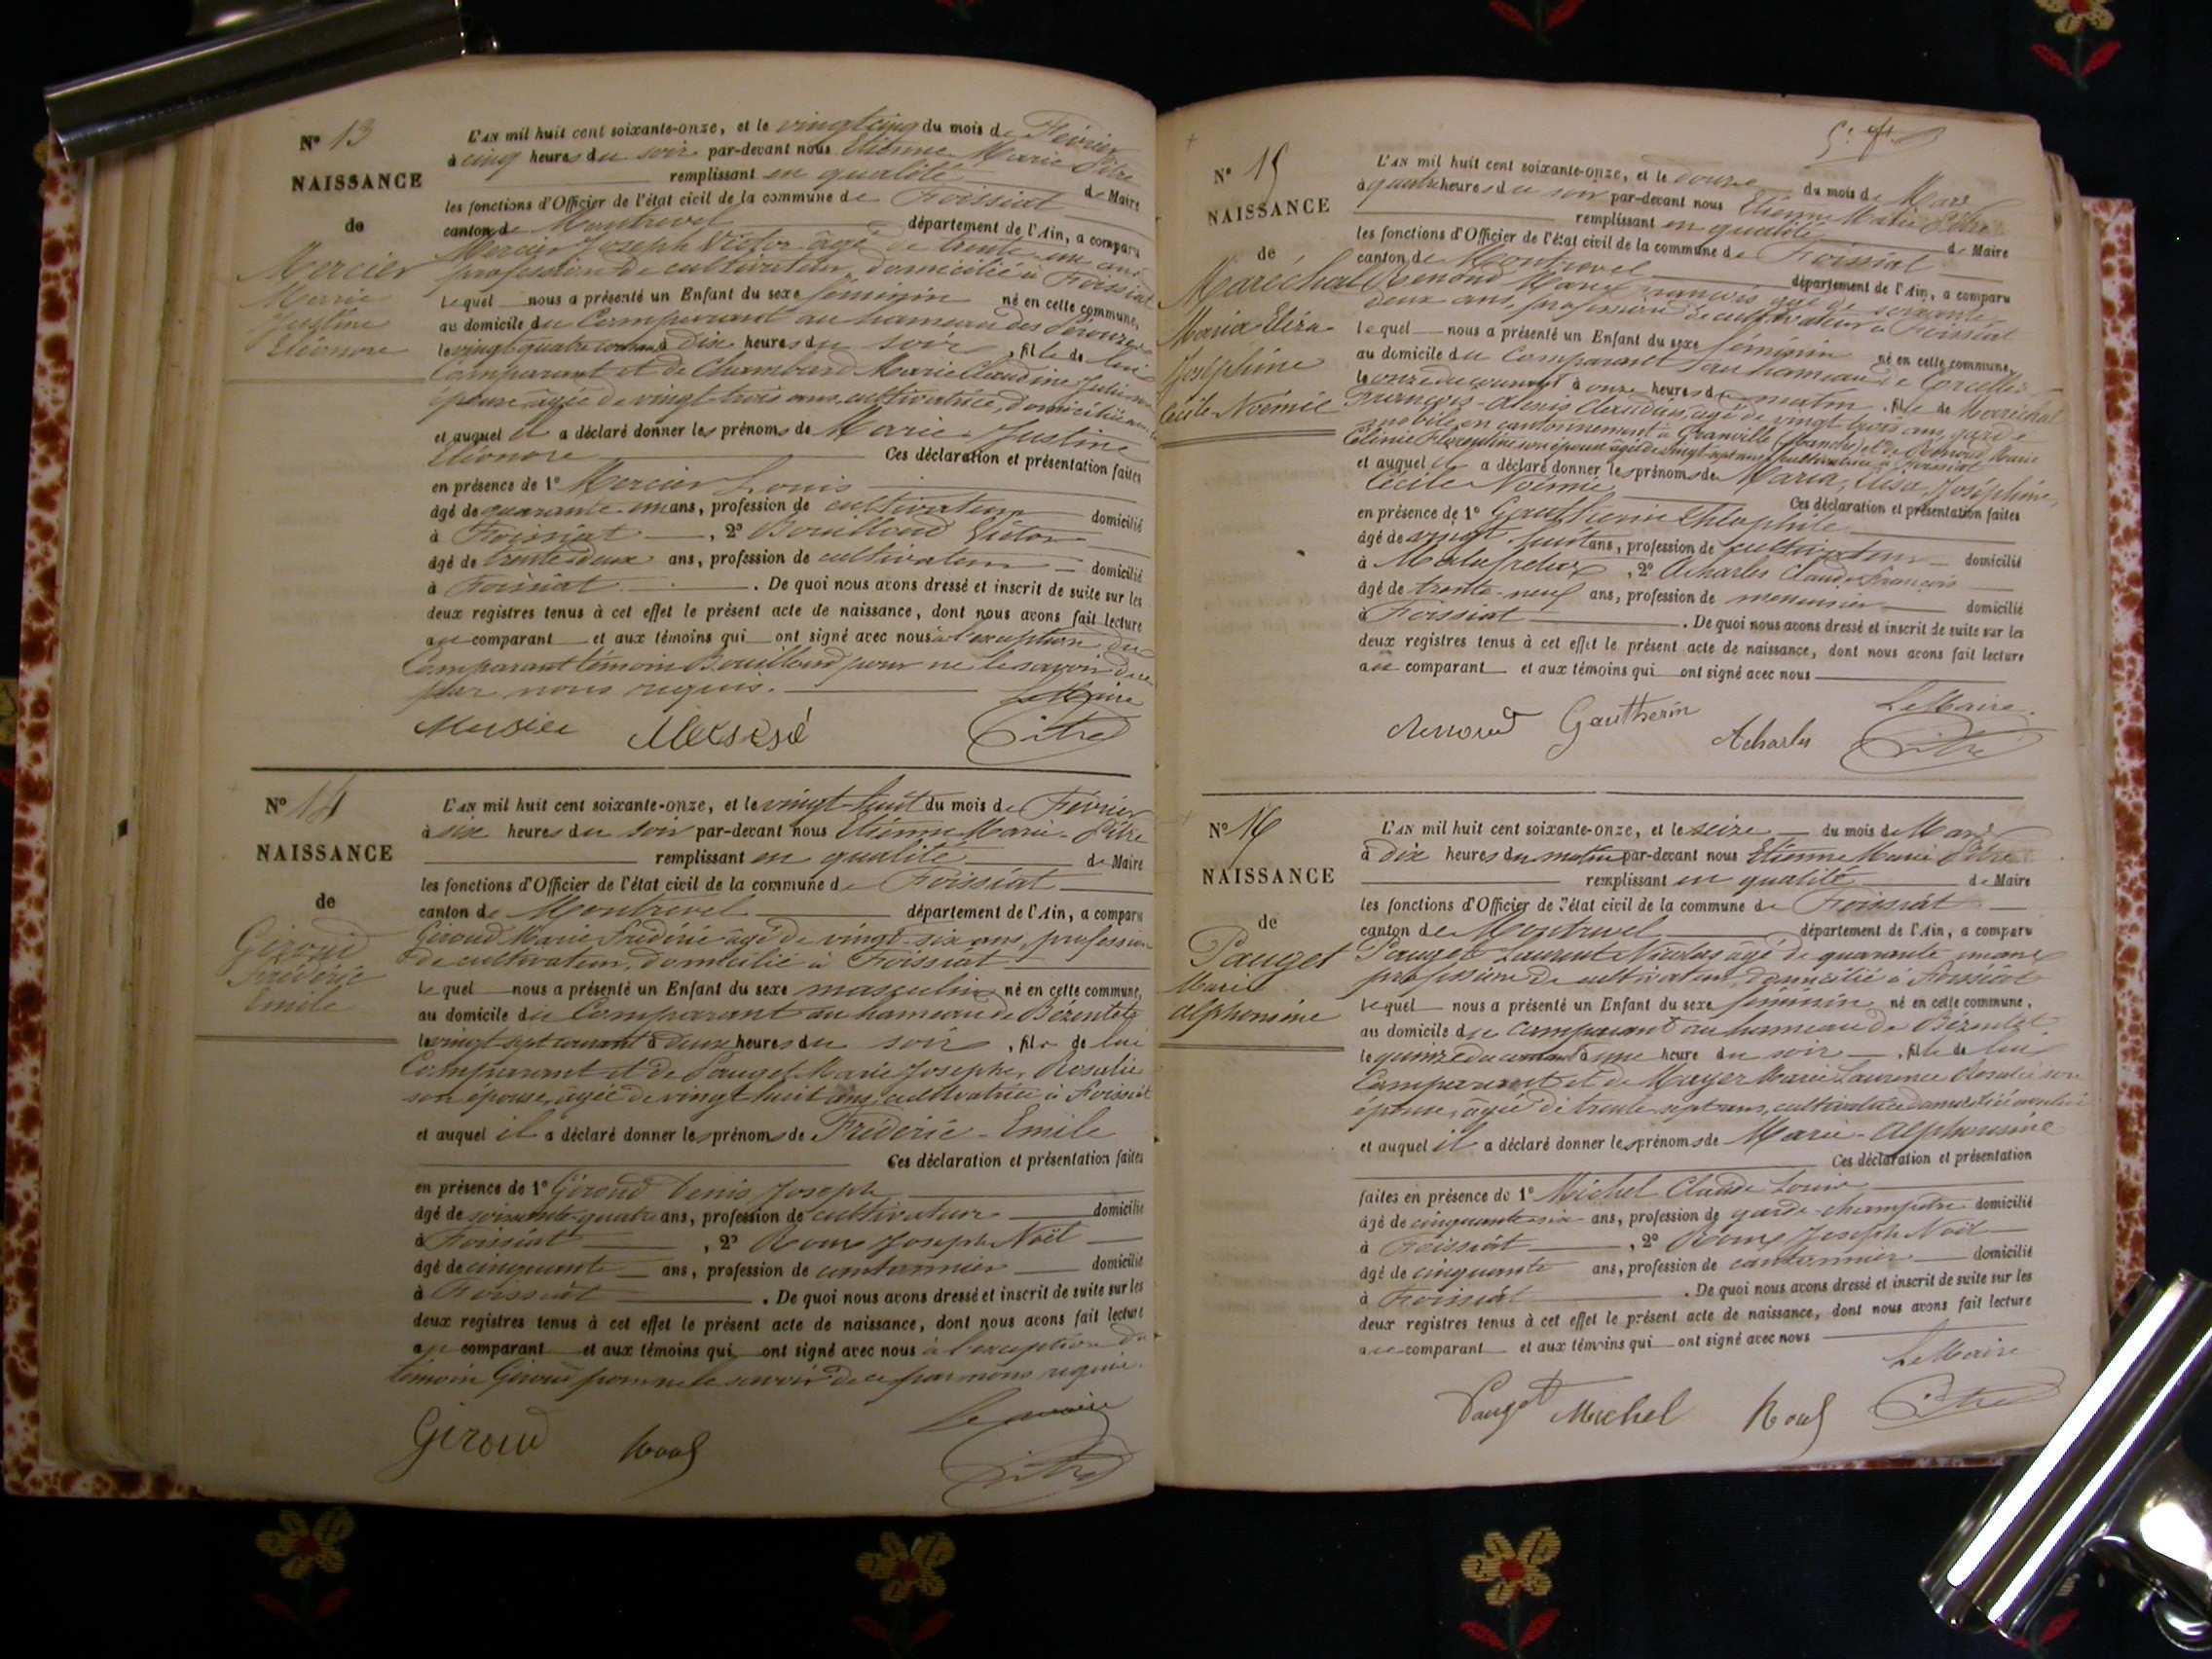 N° 13
NAISSANCE
de
Mercier
Marie
Justine
Eléonore
L'AN mil huit cent soixante-onze, et le vingt cinq du mois de Février
à cinq heures du soir par-devant nous Etienne Marie Pitre
remplissant en qualité de Maire
les fonctions d'Officier de l'état civil de la commune de Foissiat
canton de Montrevel département de l'Ain, a comparu
Mercier Joseph Victor âgé de trente un ans
profession de cultivateur domicilié à Foissiat
lequel nous a présenté un Enfant du sexe féminin né en cette commune,
au domicile du Comparant au hameau des
le vingt quatre courant à dix heures du soir, fille de lui
Comparant et de Chambard Marie Claudine
épouse âgée de vingt trois ans, cultivatrice, domiciliée
et auquel il a déclaré donner les prénoms de Marie Justine
Eléonore Ces déclaration et présentation faites
en présence de 1° Mercier Louis
âgé de quarante un ans, profession de cultivateur domicilié
à Foissiat, 2° Bouilloud Victor
âgé de trente deux ans, profession de cultivateur domicilié
à Foissiat. De quoi nous avons dressé et inscrit de suite sur les
deux registres tenus à cet effet le présent acte de naissance, dont nous avons fait lecture
au comparant et aux témoins qui ont signé avec nous à l'exception du
Comparant témoin Bouilloud pour ne le savoir de ce
par nous requis. Le Maire
Mercier Pitre
N° 14
NAISSANCE
de
Giroud
Frédéric
Emile
L'AN mil huit cent soixante-onze, et le vingt-huit du mois de Février
à six heures du soir par-devant nous Etienne Marie Pitre
remplissant en qualité de Maire
les fonctions d'Officier de l'état civil de la commune de Foissiat
canton de Montrevel département de l'Ain, a comparu
Giroud Marie Frédéric âgé de vingt-six ans, profession
de cultivateur, domicilié à Foissiat
lequel nous a présenté un Enfant du sexe masculin né en cette commune,
au domicile du Comparant au hameau de Bézentet
le vingt sept courant à deux heures du soir, fils de lui
Comparant et de Pauget Marie Josephe, Rosalie
son épouse, âgée de vingt huit ans, cultivatrice à Foissiat
et auquel il a déclaré donner les prénoms de Frédéric-Emile
Ces déclaration et présentation faites
en présence de 1° Giroud Denis Joseph
âgé de soixante-quatre ans, profession de cultivateur domicilié
à Foissiat, 2° Roux Joseph Noël
âgé de cinquante ans, profession de cantonnier domicilié
à Foissiat. De quoi nous avons dressé et inscrit de suite sur les
deux registres tenus à cet effet le présent acte de naissance, dont nous avons fait lecture
au comparant et aux témoins qui ont signé avec nous à l'exception du
témoin Giroud pour ne le savoir de ce par nous requis.
Giroud Roux Le maire
Pitre
N° 15
NAISSANCE
de
Maréchal
Maria Eliza
Joséphine
Cécile Noémie
L'AN mil huit cent soixante-onze, et le douze du mois de Mars
à quatre heures du soir par-devant nous Etienne Marie Pitre
remplissant en qualité de Maire
les fonctions d'Officier de l'état civil de la commune de Foissiat
canton de Montrevel département de l'Ain, a comparu
Renoud Marie François âgé de soixante
deux ans, profession de cultivateur à Foissiat
lequel nous a présenté un Enfant du sexe féminin né en cette commune,
au domicile du Comparant au hameau de Corcelles
le onze du courant à onze heures du matin, fille de Maréchal
François-Alexis Claudius, âgé de vingt trois ans, garde
mobile en cantonnement à Granville (Manche) et de Renoud Marie
Célinie Florentine son épouse âgée de vingt sept ans, cultivatrice à Foissiat
et auquel il a déclaré donner les prénoms de Maria, Eliza, Joséphine,
Cécile Noémie Ces déclaration et présentation faites
en présence de 1° Gautherin Théophile
âgé de vingt huit ans, profession de cultivateur domicilié
à Malafretaz, 2° Acharles Claude François
âgé de trente-neuf ans, profession de menuisier domicilié
à Foissiat. De quoi nous avons dressé et inscrit de suite sur les
deux registres tenus à cet effet le présent acte de naissance, dont nous avons fait lecture
au comparant et aux témoins qui ont signé avec nous
Le Maire
Renoud Gautherin Acharles Pitre
N° 16
NAISSANCE
de
Pauget
Marie
Alphonsine
L'AN mil huit cent soixante-onze, et le seize du mois de Mars
à dix heures du matin par-devant nous Etienne Marie Pitre
remplissant en qualité de Maire
les fonctions d'Officier de l'état civil de la commune de Foissiat
canton de Montrevel département de l'Ain, a comparu
Pauget Laurent Nicolas âgé de quarante un ans
profession de cultivateur, domicilié à Foissiat
lequel nous a présenté un Enfant du sexe féminin né en cette commune,
au domicile du comparant au hameau de Bézentet
le quinze du courant à une heure du soir, fille de lui
Comparant et de Moyer Marie Laurence Rosalie son
épouse, âgée de trente sept ans, cultivatrice domiciliée avec lui
et auquel il a déclaré donner les prénoms de Marie-Alphonsine
Ces déclaration et présentation
faites en présence de 1° Michel Claude Louis
âgé de cinquante six ans, profession de garde-champêtre domicilié
à Foissiat, 2° Roux Joseph Noël
âgé de cinquante ans, profession de cantonnier domicilié
à Foissiat. De quoi nous avons dressé et inscrit de suite sur les
deux registres tenus à cet effet le présent acte de naissance, dont nous avons fait lecture
au comparant et aux témoins qui ont signé avec nous
Le Maire
Pauget Michel Roux Pitre